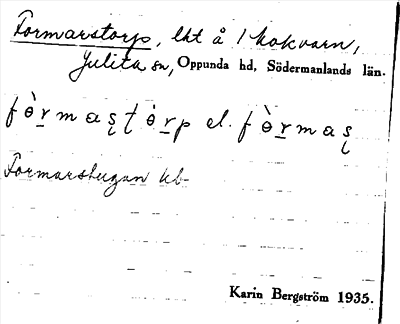 Formarstorp, lht å 1 kokvarn,
Julita sn, Oppunda hd, Södermanlands län.
fɵ̀r̲mas̨tɵ́r̲p el. fɵ̀r̲mas̨
Formarstugan lb
Karin Bergström 1935.